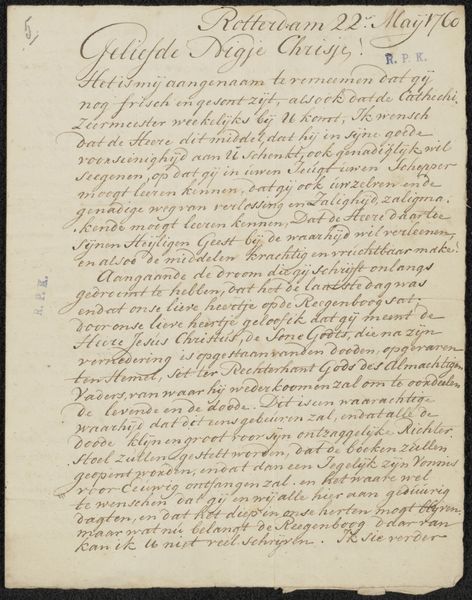 5
Rotterdam 22 Maÿ 1760
Geliefde Nigje Chrisje!
R. P. K.
Het is mij aangenaam te verneemen dat gij
nog frisch en gesont zijt, als ook dat de Cathechi
zeermeester weekelijks bij U komt, Ik wensch
dat de Heere dit middel, dat hij in sijne goede
voorsienighijd aan U schenkt, ook genadiglijk wil
seegenen, op dat gij in uwen Jeugt uwen Schepper
moogt leeren kennen, dat gij ook uw zelven en de
genadige weg van verlossing en Zalighijd, zaligma:
kende moogt leeren kennen, Dat de Heere daar toe
sijnen Heijligen Geest bij de waarhijd wil verleenen,
en alsoo de middelen krachtig en vruchtbaar make.
R. P. K.
Aangaande de droom die gij schrijft onlangs
gedroomt te hebben, dat het de laatste dag was
en dat onse lieve heertje op de Reegenboog sat:
door onse lieve heertje geloof ik dat gij meent de
Heere Jesus Christus, de Sone Godts, die na zijn
vernedering is opgestaan van den dooden, opgevaren
ten Hemel, sit ter Rechterhant Gods des Almachtigen
Vaders, van waar hij wederkoomen zal om te oordeelen
de levende en de doode. Dit is een waarachtige
waarhijd dat dit eens gebeuren zal, en dat alle de
doode klijn en groot voor sijn ontzaggelijke Richter
stoel zullen gestelt worden, dat de boeken zullen
geopent worden, en dat dan een Iegelijk zijn Vonnis
voor Eeuwig ontfangen zal. en het waare wel
te wenschen dat gij en wij alle hier aan geduurig
dagten, en dat het diep in onse herten mogt blijven.
maar wat nu belangt de Reegenboog d daar van
kan ik U niet veel schrijven. Ik sie verder